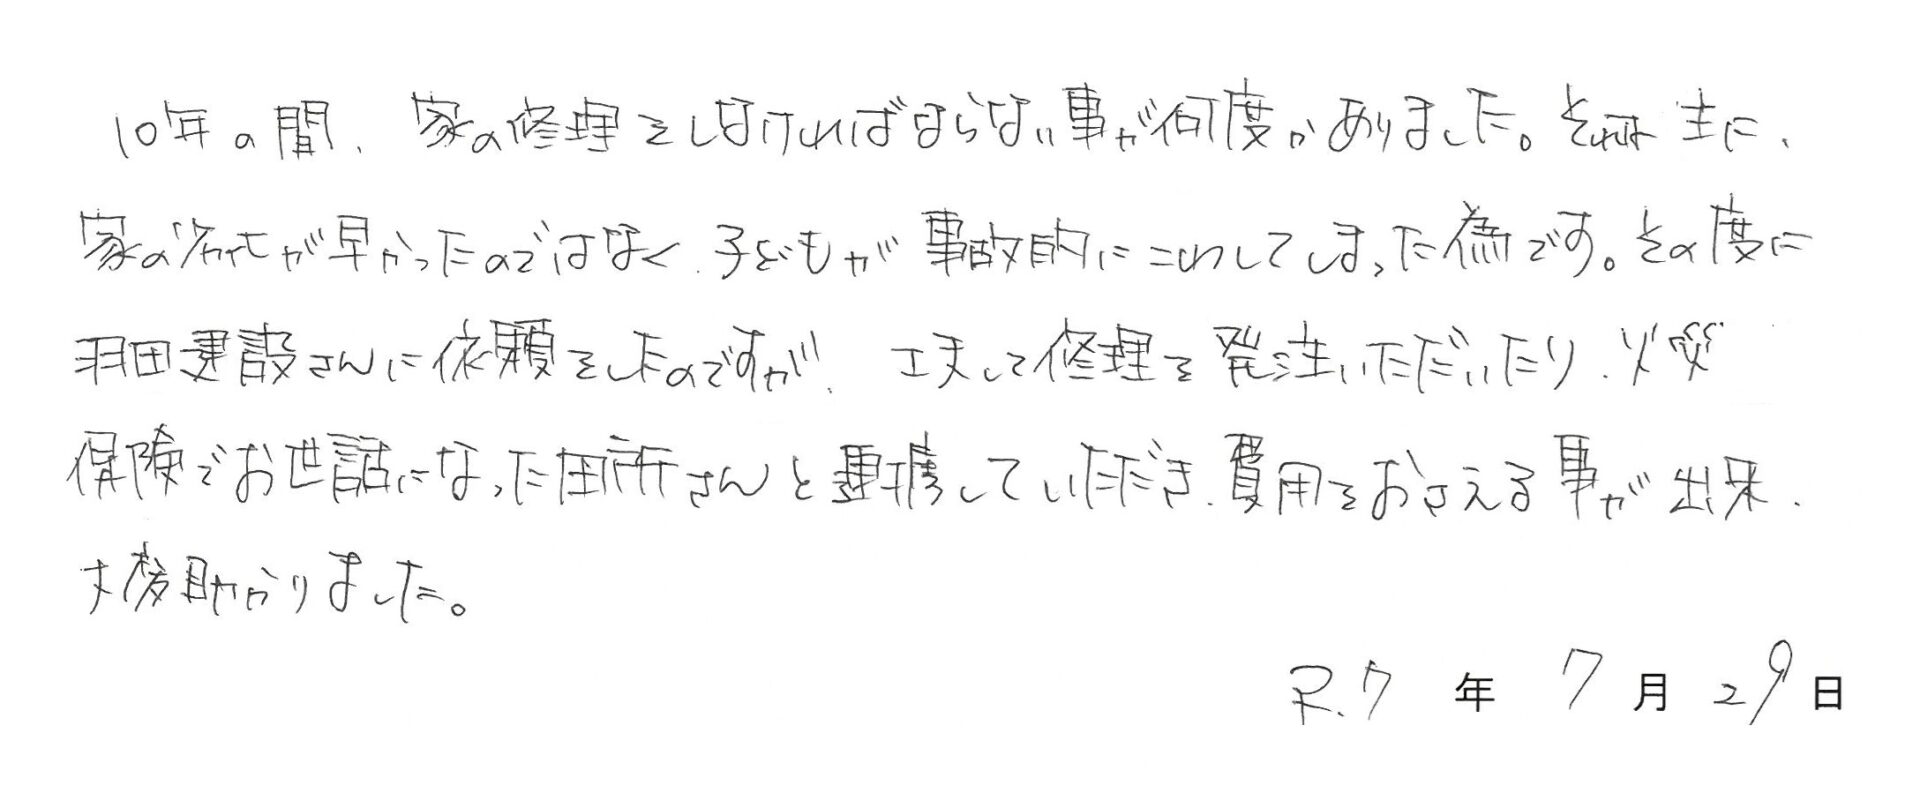 10年の間、家の修理をしなければならない事が何度かありました。それは主に、
家の劣化が早かったのではなく、子どもが事故的にこわしてしまった為です。その度に
羽田建設さんに依頼をしたのですが、工夫して修理を発注いただいたり、火災
保険でお世話になった田所さんと連携していただき、費用をおさえる事が出来、
大変助かりました。
R.7年7月29日